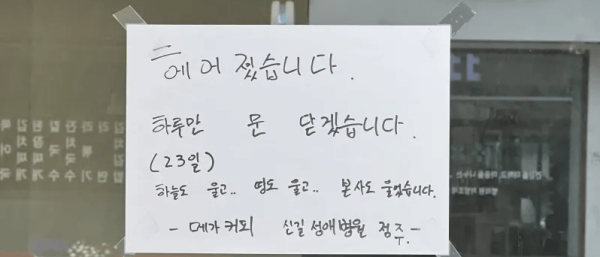 헤어 졌습니다.
하루만 문 닫겠습니다.
(23일)
하늘도 울고.. 땅도 울고.. 본사도 울었습니다.
- 메가 커피 신길 성애병원 점주.-